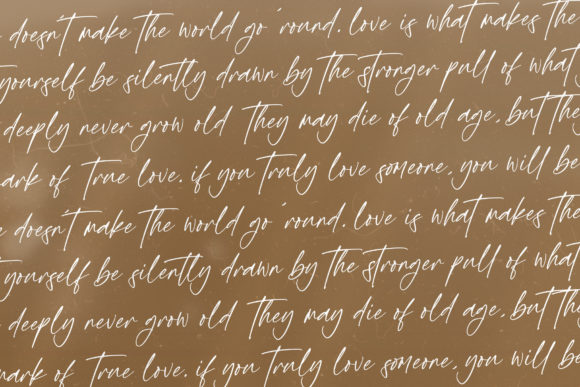 doesn't make the world go 'round. love is what makes the
yourself be silently drawn by the stronger pull of what
deeply never grow old They may die of old age, but they
ark of True love. if you truly love someone, you will be
doesn't make the world go 'round. love is what makes the
yourself be silently drawn by the stronger pull of what
deeply never grow old They may die of old age, but the
mark of True love. if you truly love someone, you will be